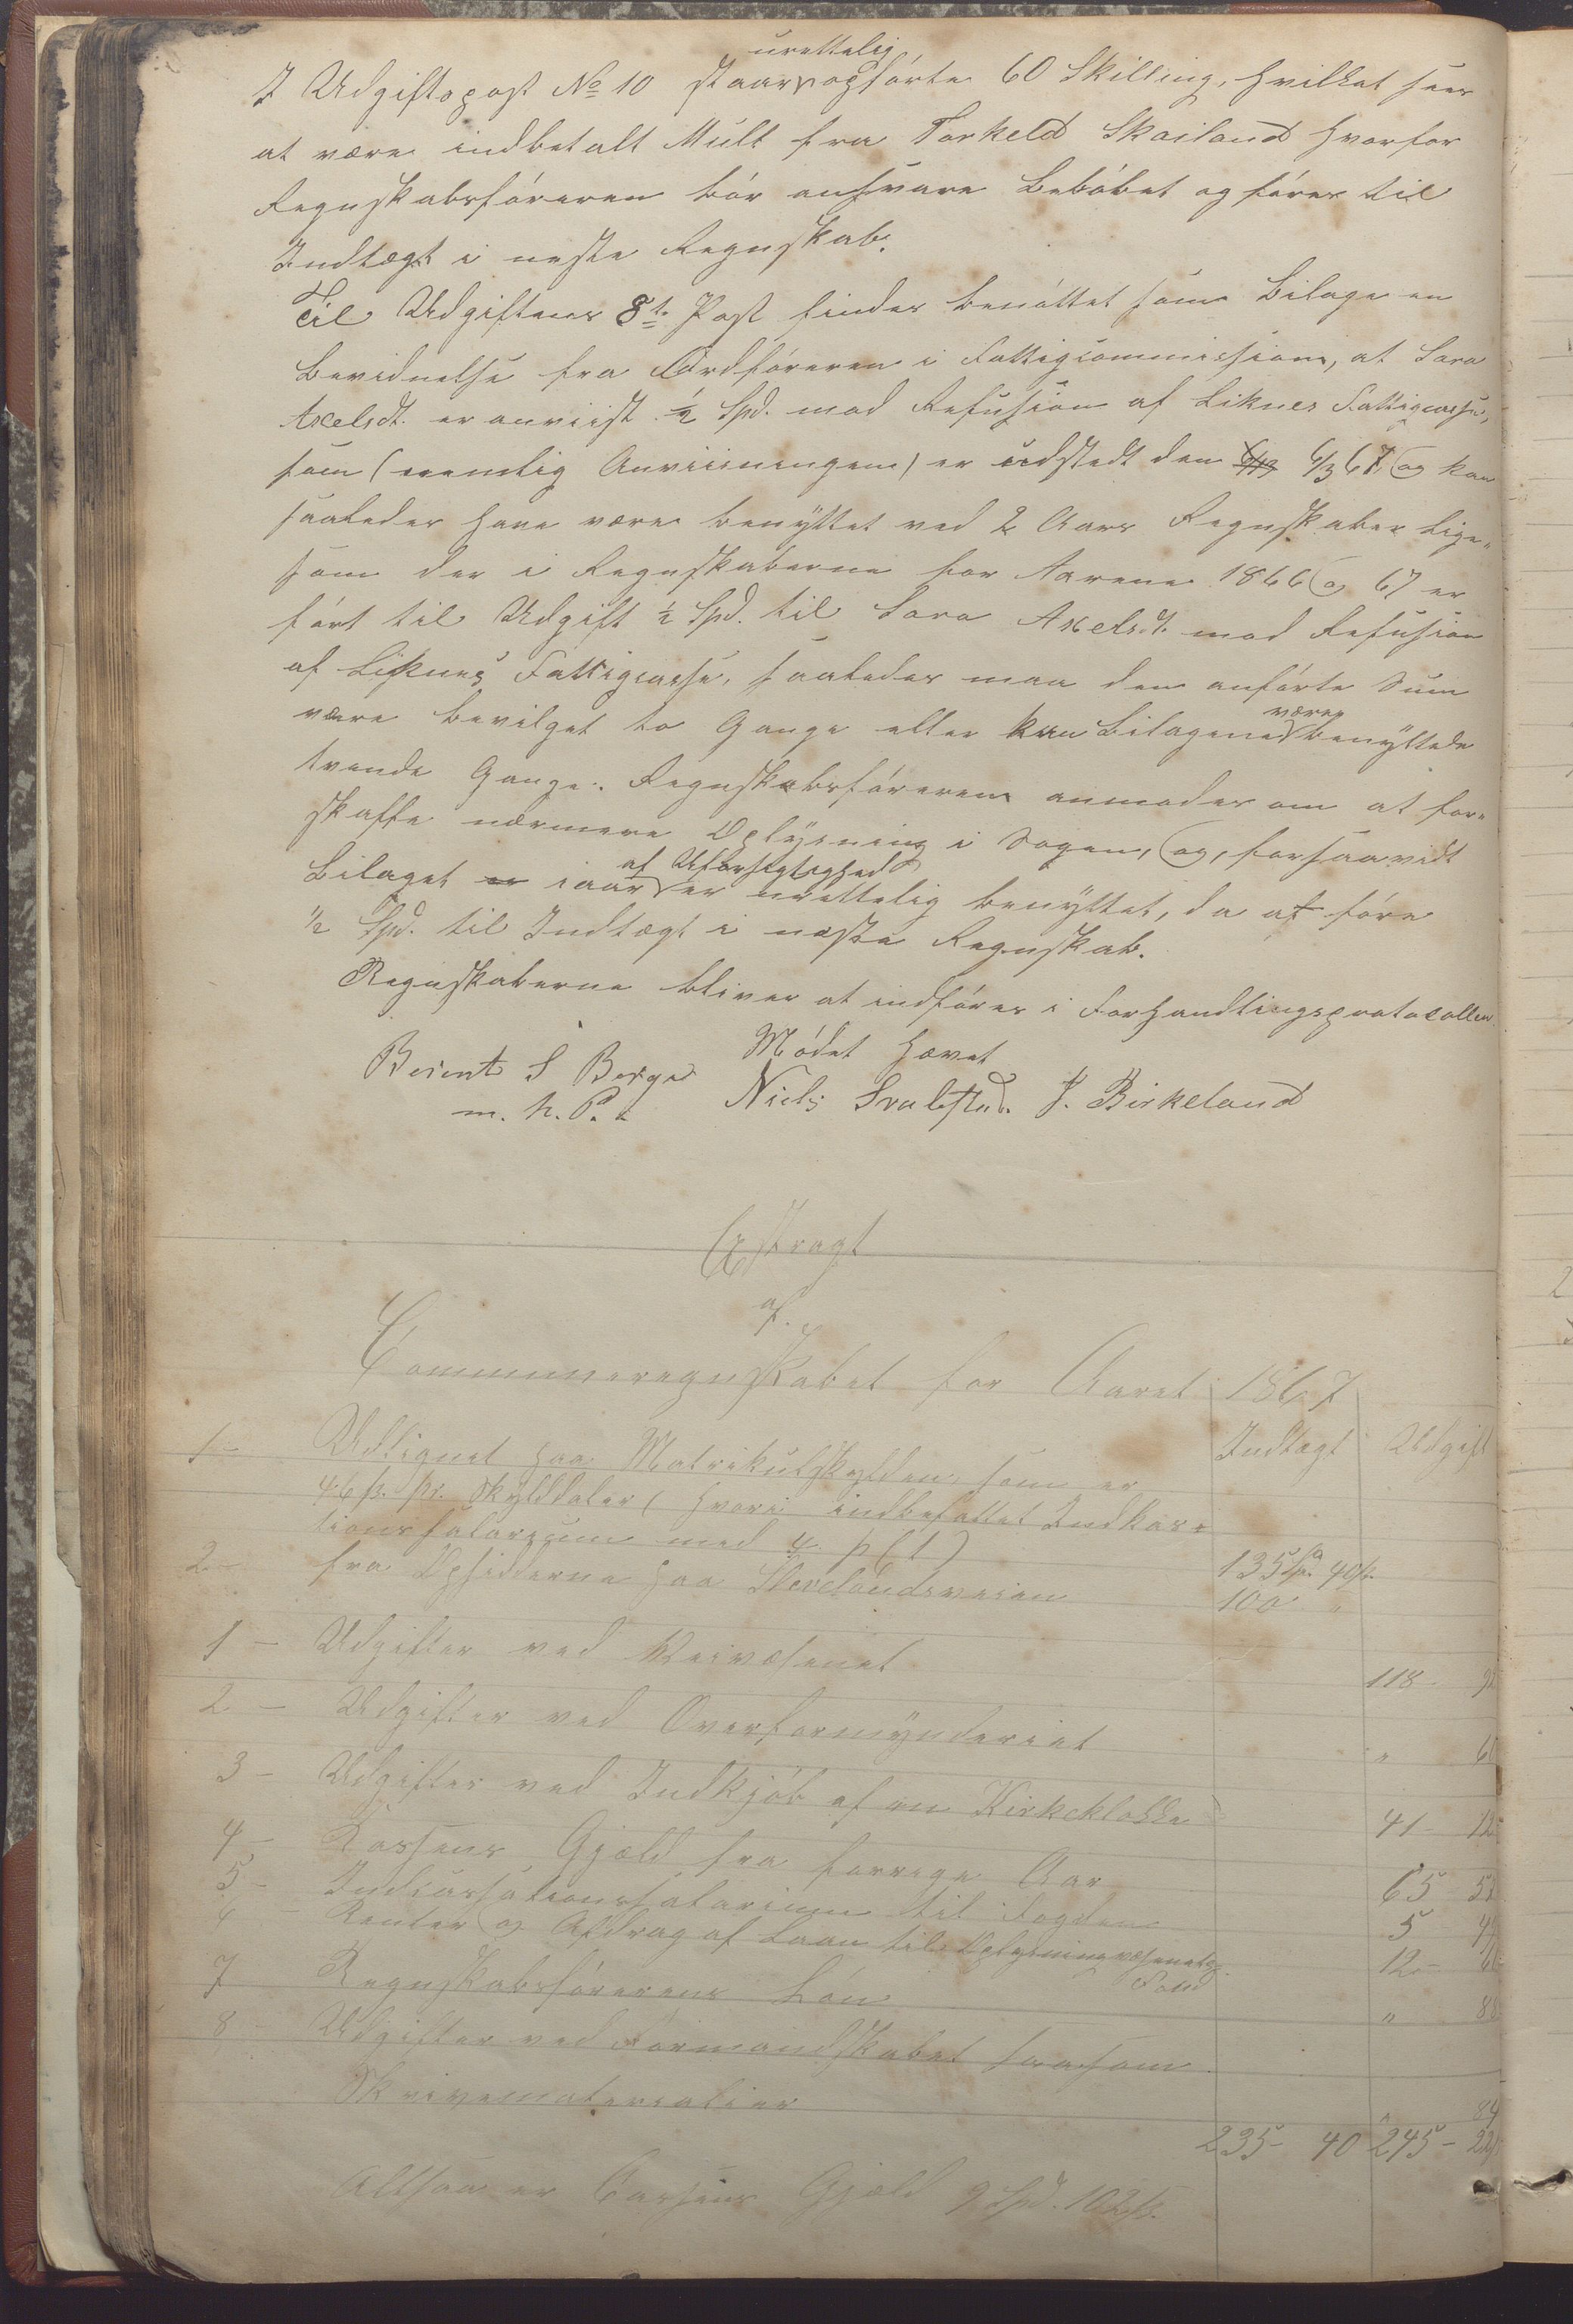 urettelig
I Udgiftspost No 10 staar opførte 60 Skilling, hvilket sees
at være indbetalt Mult fra Torkeld Skailand hvorfor
Regnskabsføreren bør ansvare Beløbet og føres til
Indtægt i neste Regnskab.
Til Udgiftens 8de Post findes benøttet som Bilage en
Bevidnelse fra Ordføreren i Fattigcommission, at Sara
Axelsdt. er anviist ½ Spd. mod Refusion af Liknes Fattigcasse,
som (nemlig Anviisningen) er udstedt den 6/3 67, og kan
saaledes have være benyttet ved 2 Aars Regnskaber lige-
som der i Regnskaberne for Aarene 1866 og 67 er
ført til Udgift ½ Spd. til Sara Axelsdt. mod Refusion
af Liknes Fattigcasse, saaledes maa den anførte Sum
være
være bevilget to Gange eller kan Bilagene benyttede
tvende Gange. Regnskabsføreren anmodes om at for-
skaffe nærmere Oplysning i Sagen, og, forsaavidt
af Uforsigtighed
Bilaget er iaar er urettelig benyttet, da at føre
½ Spd. til Indtægt i næste Regnskab.
Regnskaberne bliver at indføres i Forhandlingsprotocollen.
Mødet hævet
Berent S Berge Niels Svalestad. J. Birkeland
m. h. P.
Extragt
af.
Communeregnskabet for Aaret 1867
Indtægt Udgift
1 - Udlignet paa Matrikulskylden som er
46 ß. pr. Skylddaler (hvori indbefattet Indkas-
tionssalarium med 4 p Ct)
135 Spd. 40 ß.
2 - fra Opsidderne paa Stervelandsveien 100 "
1 - Udgifter ved Veivæsenet 118 -
2 - Udgifter ved Overformynderiet "
3 - Udgifter ved Indkjøb af en Kirkeklokke 41 - 12
4 - Kassens Gjæld fra forrige Aar 65 52
5 - Indcassationssalarium til Fogden 5
6 - Renter og Afdrag af Laan til Oplysningvæsenets
Fond 12 -
7 Regnskabsførerens Løn " 88
8 Udgifter ved Formandskabet saasom
Skrivematerialier " 84
235 - 40 245 - 22
Altsaa er Cassens Gjæld 9 Spd. 102 ß.